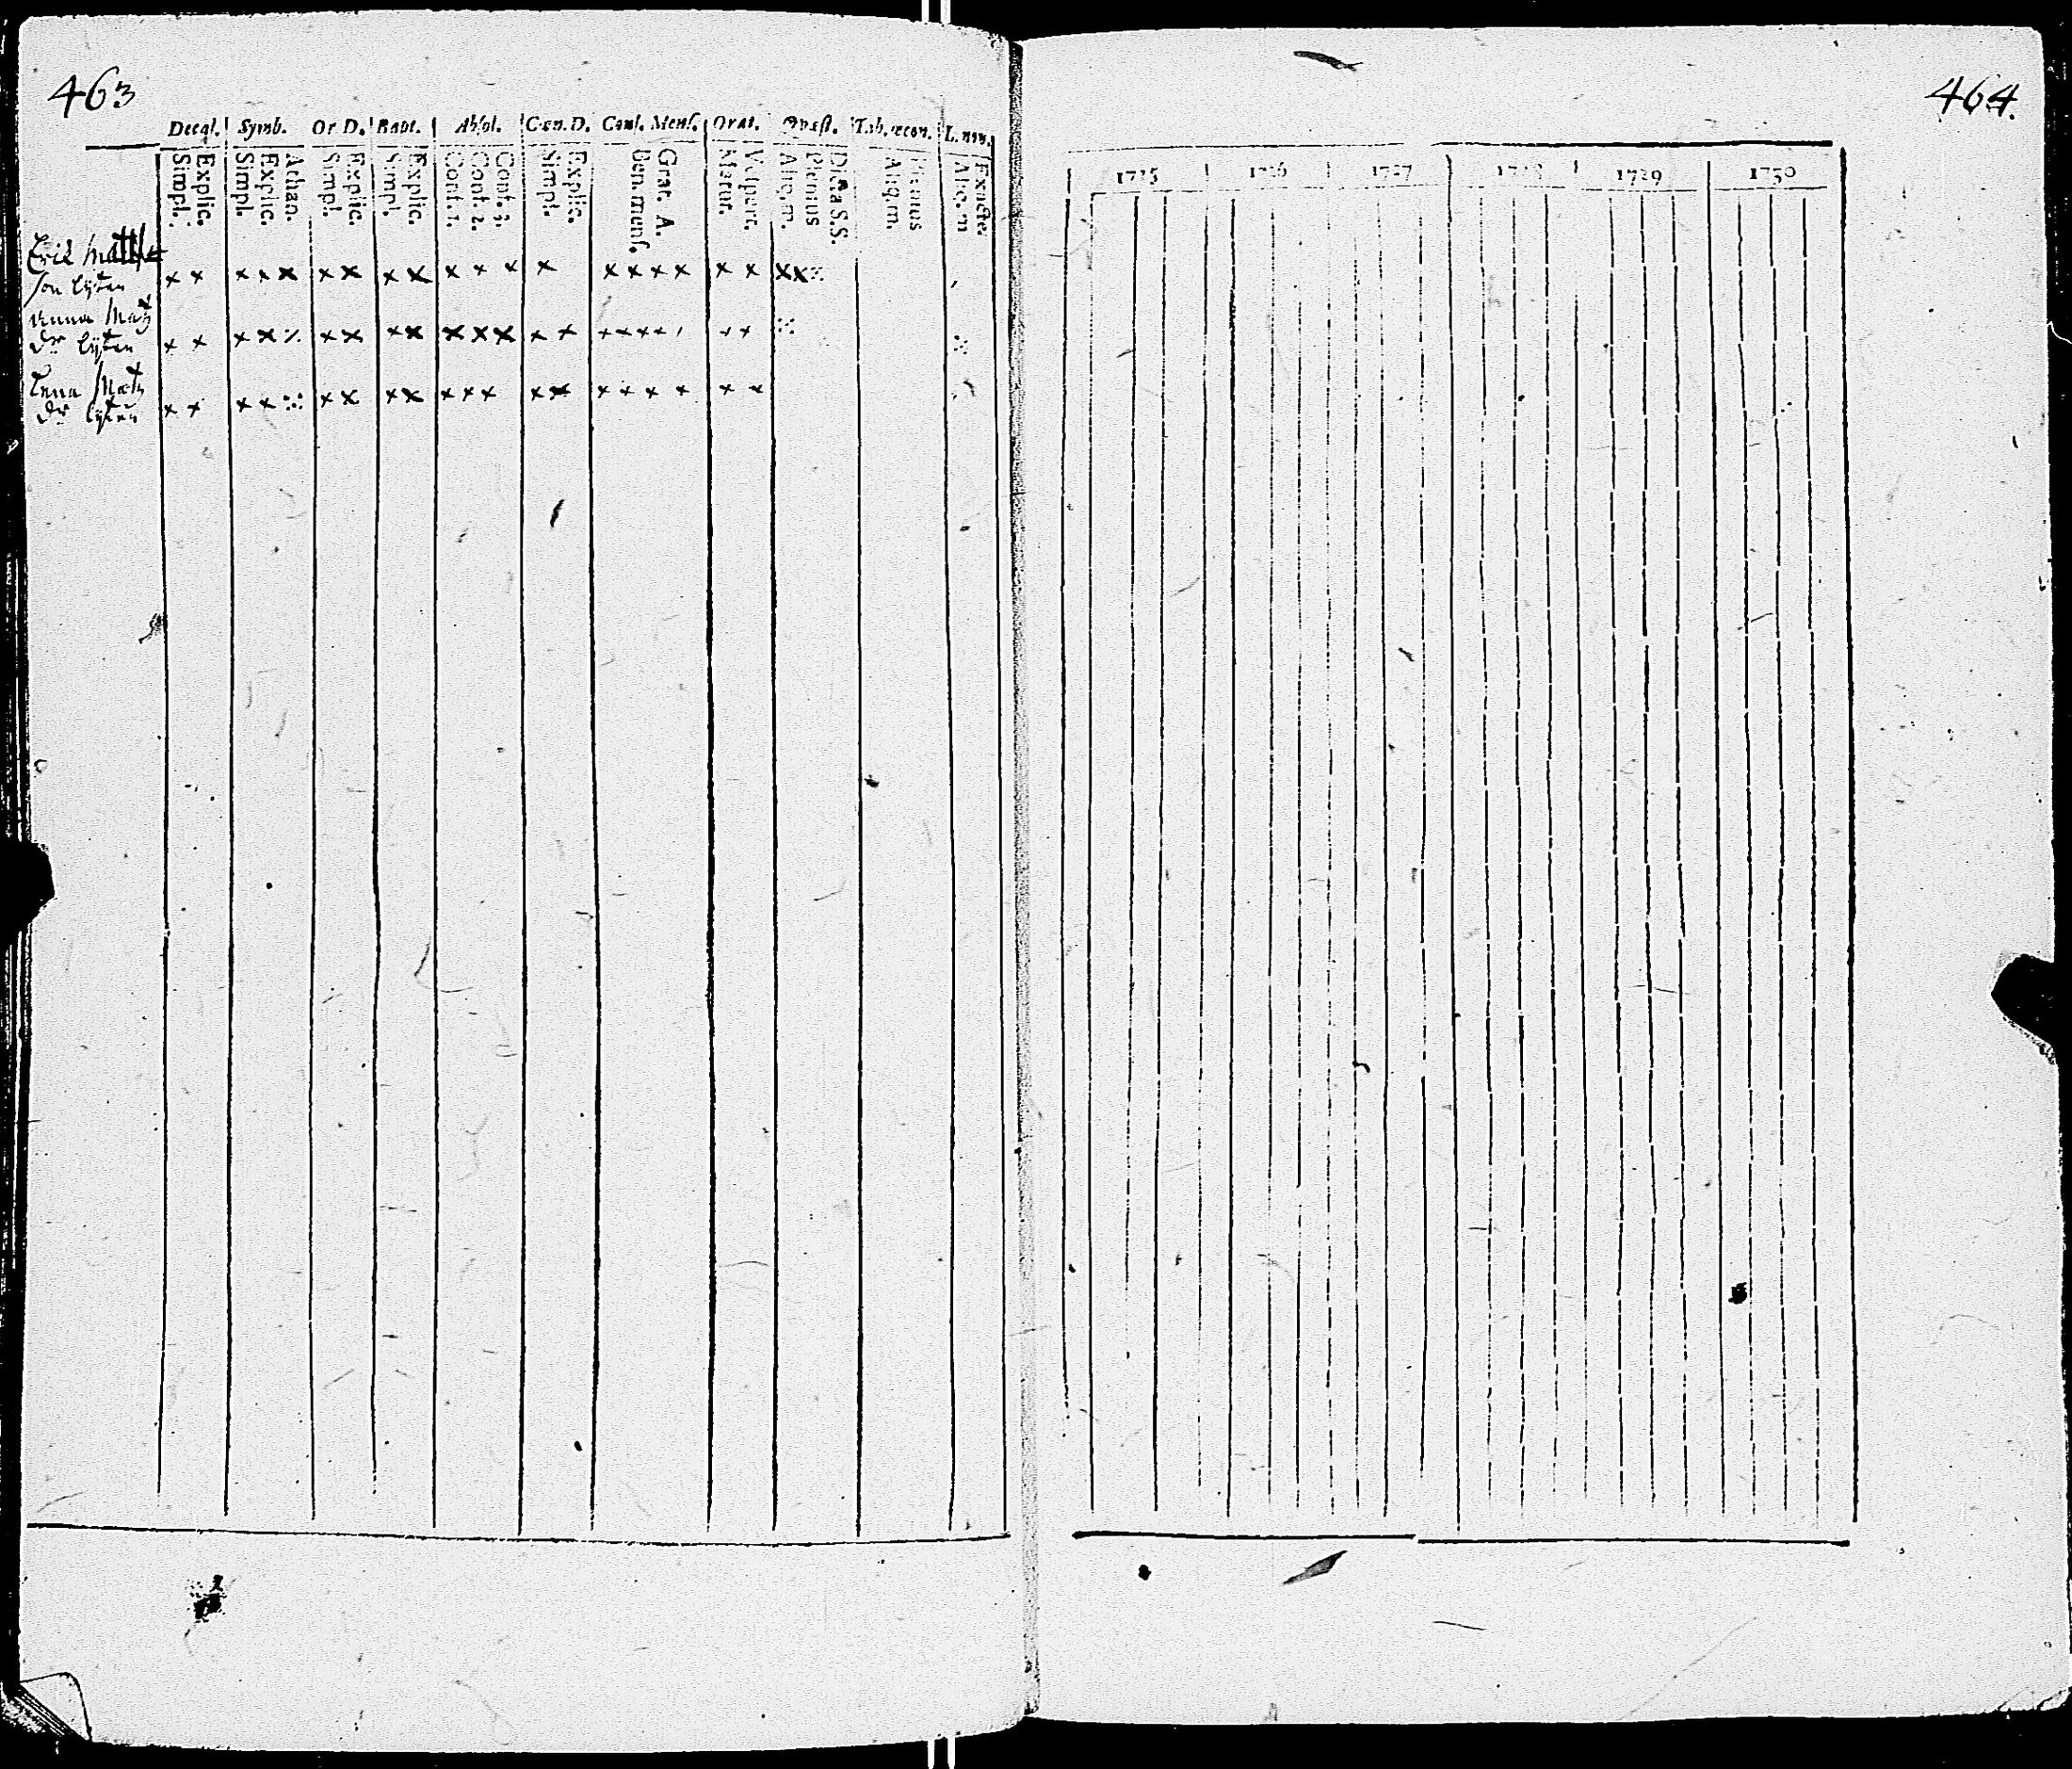 463
Decal. Symb. Or D. Bapt. Absol. Cœn. D. Conf. Mens. Orat. Quæst. Tab. œcon. L. nov.
Simpl. Explic. Simpl. Explic. Athan. Simpl. Explic. Simpl. Explic. Conf. 1. Conf. 2. Conf. 3. Simpl. Explic. Ben. mens. Grat. A. Matut. Vespert. Aliq. m. Plenius Dicta S.S. Aliq. m. Plenius Aliq. m Exacte.
Erik Matths
son lijten
Anna Matz
dr lijten
Lena Matz
dr lijten
464.
1725 1726 1727 1728 1729 1730